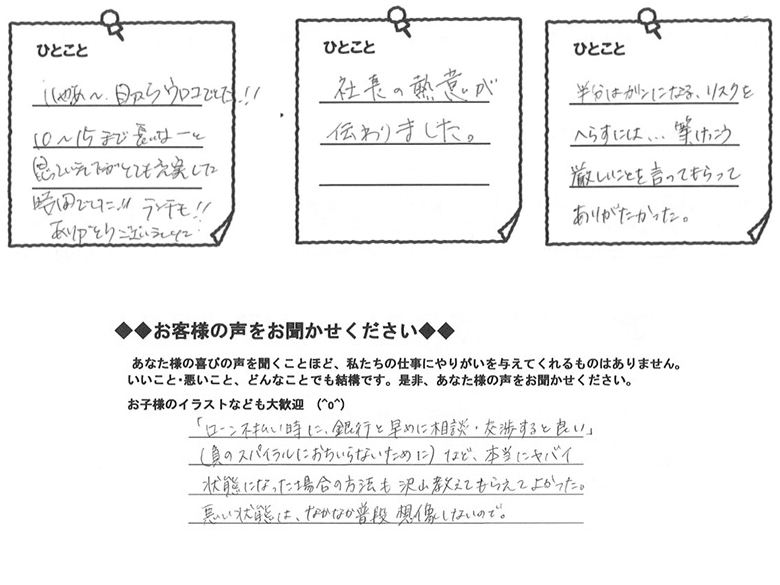 ひとこと
いやあ〜、目からウロコでした!!
10〜15まで長いなーと
思っていましたがとても充実した
時間でした!! ランチも!!
ありがとうございました
ひとこと
社長の熱意が
伝わりました。
ひとこと
半分はガンになる、リスクを
へらすには…等けっこう
厳しいことを言ってもらって
ありがたかった。
◆◆お客様の声をお聞かせください◆◆
あなた様の喜びの声を聞くことほど、私たちの仕事にやりがいを与えてくれるものはありません。
いいこと・悪いこと、どんなことでも結構です。是非、あなた様の声をお聞かせください。
お子様のイラストなども大歓迎　(^o^)
「ローン不払い時に、銀行と早めに相談・交渉すると良い」
(負のスパイラルにおちいらないために)など、本当にヤバイ
状態になった場合の方法も沢山教えてもらえてよかった。
悪い状態は、なかなか普段想像しないので。